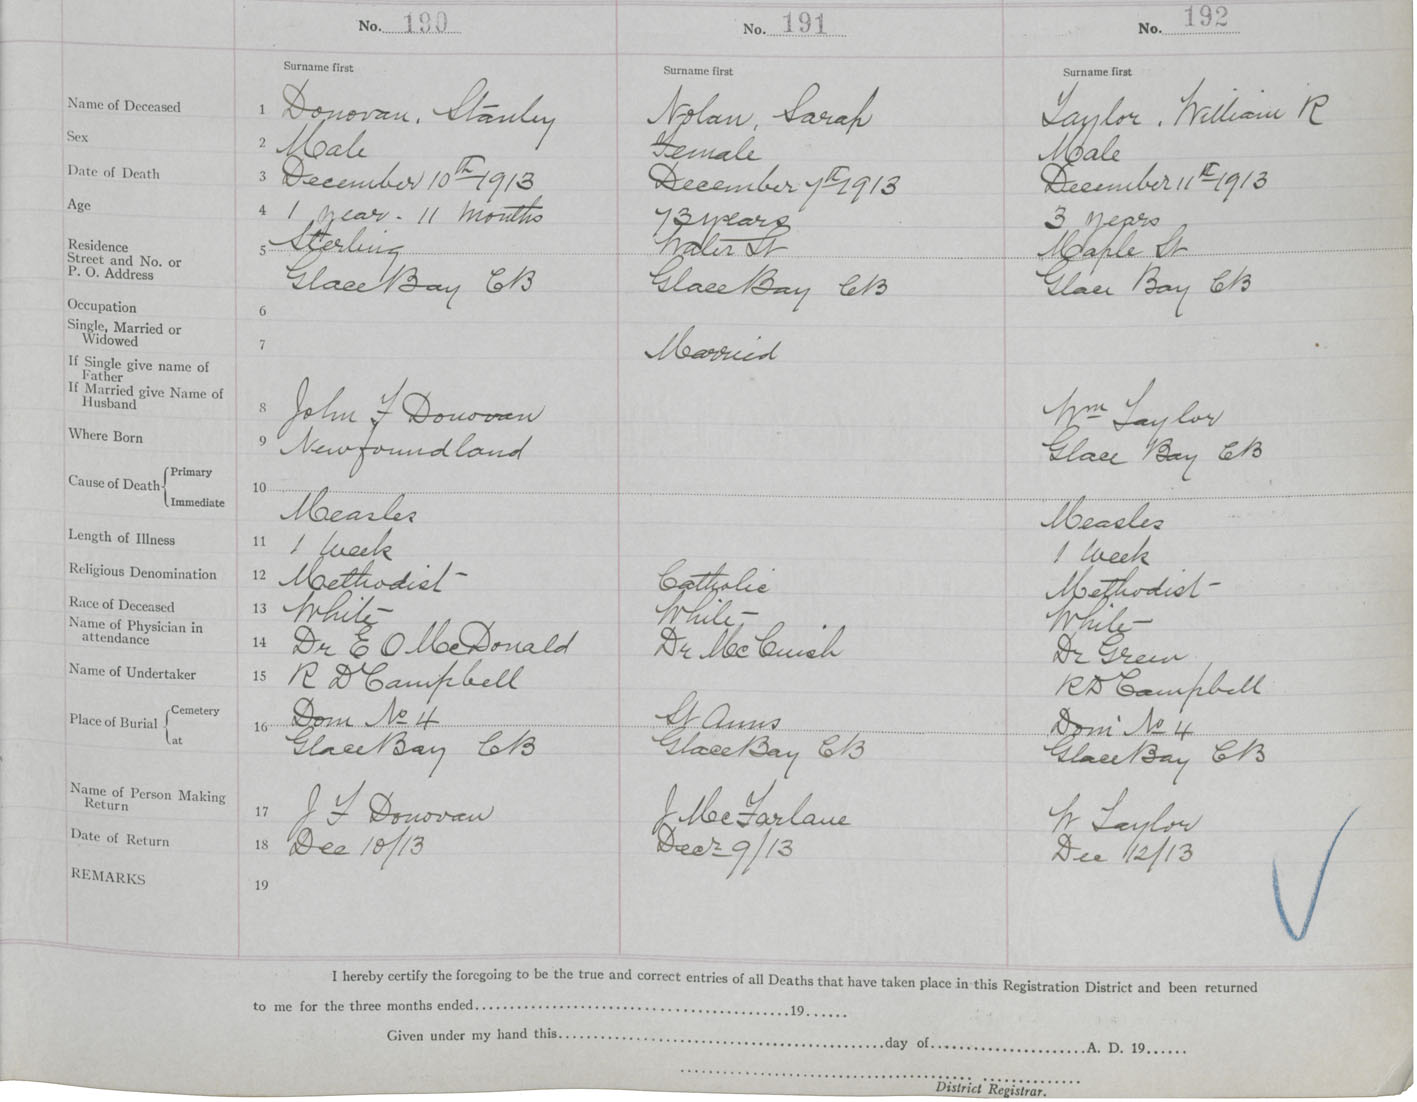 No. 190 No. 191 No. 192
Surname first Surname first Surname first
Name of Deceased 1 Donovan, Stanley Nolan, Sarah Taylor, William R
Sex 2 Male Female Male
Date of Death 3 December 10th 1913 December 7th 1913 December 11th 1913
Age 4 1 year - 11 months 73 years 3 years
Residence 5 Sterling Water St Maple St
Street and No. or
P. O. Address Glace Bay CB Glace Bay CB Glace Bay CB
Occupation 6
Single, Married or
Widowed 7 Married
If Single give name of
Father
If Married give Name of
Husband 8 John F Donovan Wm Taylor
Where Born 9 Newfoundland Glace Bay CB
Cause of Death { Primary
10
Immediate Measles Measles
Length of Illness 11 1 Week 1 Week
Religious Denomination 12 Methodist Catholic Methodist
Race of Deceased 13 White White White
Name of Physician in
attendance 14 Dr E O McDonald Dr McCuish Dr Green
Name of Undertaker 15 R D Campbell R D Campbell
Place of Burial { Cemetery 16 Dom No 4 St Anns Dom No 4
at Glace Bay CB Glace Bay CB Glace Bay CB
Name of Person Making
Return 17 J F Donovan J McFarlane W Taylor
Date of Return 18 Dec 10/13 Decr 9/13 Dec 12/13
REMARKS 19
I hereby certify the foregoing to be the true and correct entries of all Deaths that have taken place in this Registration District and been returned
to me for the three months ended..........19......
Given under my hand this..........day of..........A. D. 19......
District Registrar.